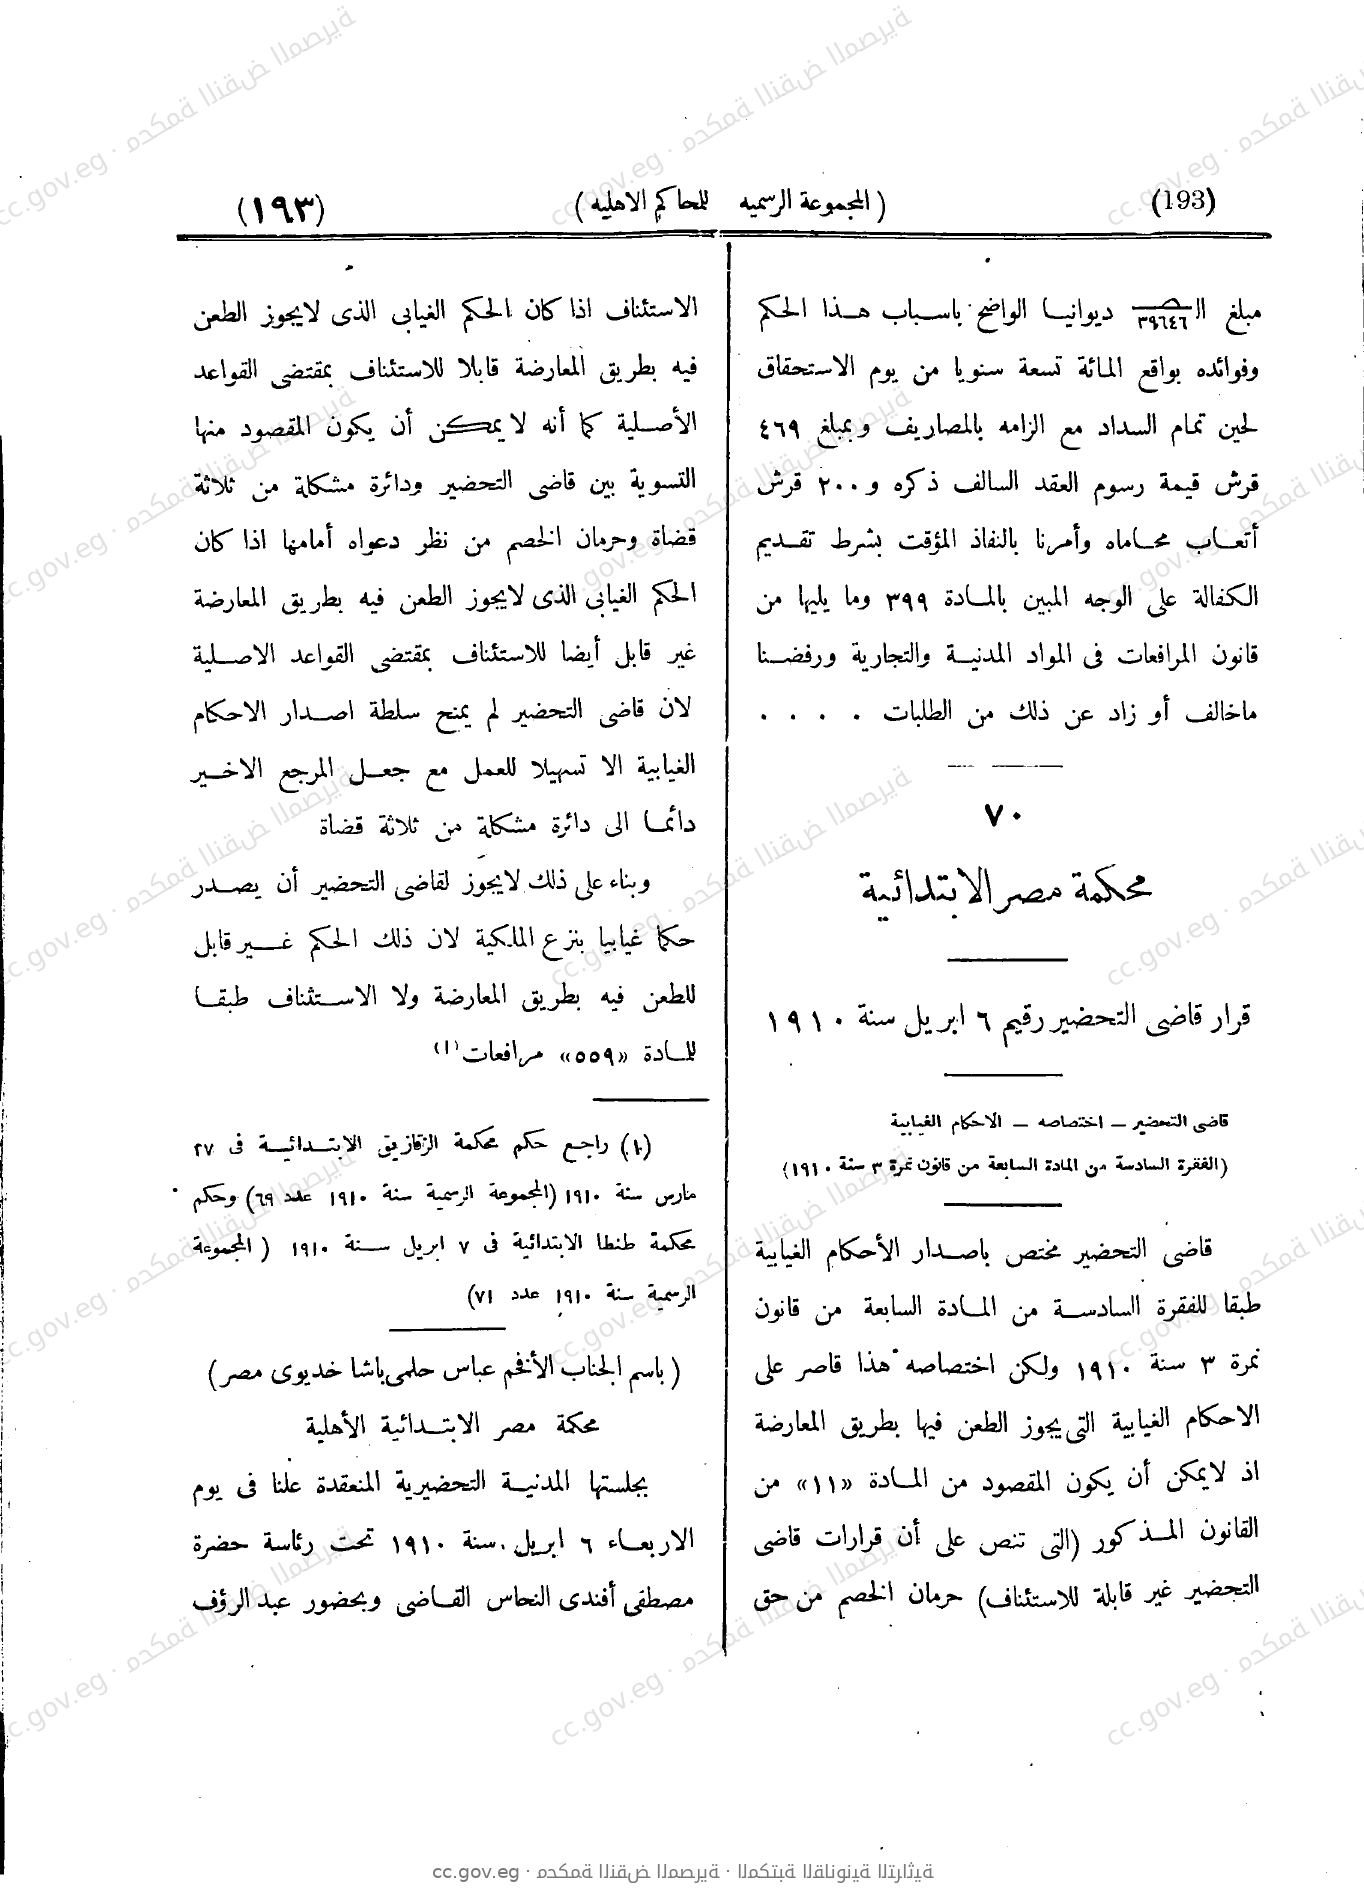 (193) (المجموعة الرسميه للمحاكم الاهليه) (١٩٣)
مبلغ الـ ٣٩٦٤٦ ديوانيا الواضح باسباب هذا الحكم
وفوائده بواقع المائة تسعة سنويا من يوم الاستحقاق
لحين تمام السداد مع الزامه بالمصاريف وبمبلغ ٤٦٩
قرش قيمة رسوم العقد السالف ذكره و ٢٠٠ قرش
أتعاب محاماه وأمرنا بالنفاذ المؤقت بشرط تقديم
الكفالة على الوجه المبين بالمادة ٣٩٩ وما يليها من
قانون المرافعات فى المواد المدنية والتجارية ورفضنا
ماخالف أو زاد عن ذلك من الطلبات . . . .
٧٠
محكمة مصر الابتدائية
قرار قاضى التحضير رقيم ٦ ابريل سنة ١٩١٠
قاضى التحضير – اختصاصه – الاحكام الغيابية
(الفقرة السادسة من المادة السابعة من قانون نمرة ٣ سنة ١٩١٠)
قاضى التحضير مختص باصدار الأحكام الغيابية
طبقا للفقرة السادسة من المادة السابعة من قانون
نمرة ٣ سنة ١٩١٠ ولكن اختصاصه هذا قاصر على
الاحكام الغيابية التى يجوز الطعن فيها بطريق المعارضة
اذ لايمكن أن يكون المقصود من المادة «١١» من
القانون المذكور (التى تنص على أن قرارات قاضى
التحضير غير قابلة للاستئناف) حرمان الخصم من حق
الاستئناف اذا كان الحكم الغيابى الذى لايجوز الطعن
فيه بطريق المعارضة قابلا للاستئناف بمقتضى القواعد
الأصلية كما أنه لايمكن أن يكون المقصود منها
التسوية بين قاضى التحضير ودائرة مشكلة من ثلاثة
قضاة وحرمان الخصم من نظر دعواه أمامها اذا كان
الحكم الغيابى الذى لايجوز الطعن فيه بطريق المعارضة
غير قابل أيضا للاستئناف بمقتضى القواعد الاصلية
لان قاضى التحضير لم يمنح سلطة اصدار الاحكام
الغيابية الا تسهيلا للعمل مع جعل المرجع الاخير
دائما الى دائرة مشكلة من ثلاثة قضاة
وبناء على ذلك لايجوز لقاضى التحضير أن يصدر
حكما غيابيا بنزع الملكية لان ذلك الحكم غير قابل
للطعن فيه بطريق المعارضة ولا الاستئناف طبقا
للمادة «٥٥٩» مرافعات (١)
(١) راجع حكم محكمة الزقازيق الابتدائية فى ٢٧
مارس سنة ١٩١٠ (المجموعة الرسمية سنة ١٩١٠ عدد ٦٩) وحكم
محكمة طنطا الابتدائية فى ٧ ابريل سنة ١٩١٠ (المجموعة
الرسمية سنة ١٩١٠ عدد ٧١)
(باسم الجناب الأفخم عباس حلمى باشا خديوى مصر)
محكمة مصر الابتدائية الأهلية
بجلستها المدنية التحضيرية المنعقدة علنا فى يوم
الاربعاء ٦ ابريل سنة ١٩١٠ تحت رئاسة حضرة
مصطفى أفندى النحاس القاضى وبحضور عبد الرؤف
cc.gov.eg · محكمة النقض المصرية · المكتبة القانونية التراثية